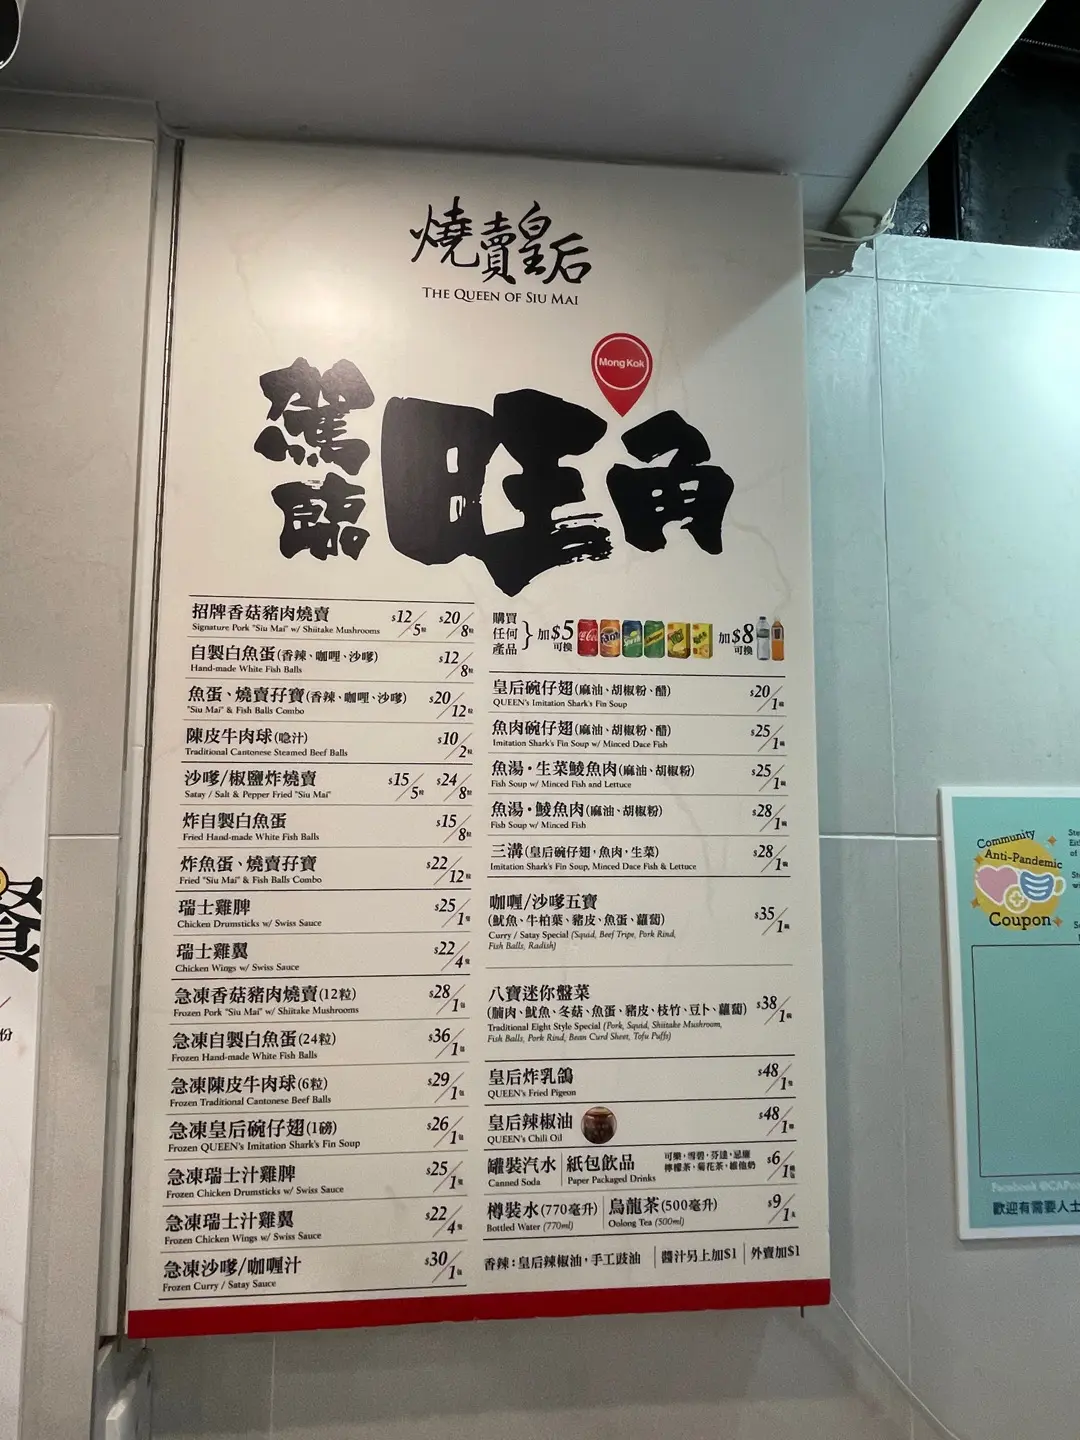 燒賣皇后
THE QUEEN OF SIU MAI
Mong Kok
駕臨
旺角
招牌香菇豬肉燒賣 $12/5粒 $20/8粒
Signature Pork "Siu Mai" w/ Shiitake Mushrooms
自製白魚蛋(香辣、咖喱、沙嗲) $12/8粒
Hand-made White Fish Balls
魚蛋、燒賣孖寶(香辣、咖喱、沙嗲) $20/12粒
"Siu Mai" & Fish Balls Combo
陳皮牛肉球(喼汁) $10/2粒
Traditional Cantonese Steamed Beef Balls
沙嗲/椒鹽炸燒賣 $15/5粒 $24/8粒
Satay / Salt & Pepper Fried "Siu Mai"
炸自製白魚蛋 $15/8粒
Fried Hand-made White Fish Balls
炸魚蛋、燒賣孖寶 $22/12粒
Fried "Siu Mai" & Fish Balls Combo
瑞士雞脾 $25/1隻
Chicken Drumsticks w/ Swiss Sauce
瑞士雞翼 $22/4隻
Chicken Wings w/ Swiss Sauce
急凍香菇豬肉燒賣(12粒) $28/1包
Frozen Pork "Siu Mai" w/ Shiitake Mushrooms
急凍自製白魚蛋(24粒) $36/1包
Frozen Hand-made White Fish Balls
急凍陳皮牛肉球(6粒) $29/1包
Frozen Traditional Cantonese Beef Balls
急凍皇后碗仔翅(1磅) $26/1包
Frozen QUEEN's Imitation Shark's Fin Soup
急凍瑞士汁雞脾 $25/1隻
Frozen Chicken Drumsticks w/ Swiss Sauce
急凍瑞士汁雞翼 $22/4隻
Frozen Chicken Wings w/ Swiss Sauce
急凍沙嗲/咖喱汁 $30/1包
Frozen Curry / Satay Sauce
購買
任何
產品
加$5
可換
加$8
可換
皇后碗仔翅(麻油、胡椒粉、醋) $20/1碗
QUEEN's Imitation Shark's Fin Soup
魚肉碗仔翅(麻油、胡椒粉、醋) $25/1碗
Imitation Shark's Fin Soup w/ Minced Dace Fish
魚湯・生菜鯪魚肉(麻油、胡椒粉) $25/1碗
Fish Soup w/ Minced Fish and Lettuce
魚湯・鯪魚肉(麻油、胡椒粉) $28/1碗
Fish Soup w/ Minced Fish
三溝(皇后碗仔翅，魚肉，生菜) $28/1碗
Imitation Shark's Fin Soup, Minced Dace Fish & Lettuce
咖喱/沙嗲五寶 $35/1碗
(魷魚、牛柏葉、豬皮、魚蛋、蘿蔔)
Curry / Satay Special (Squid, Beef Tripe, Pork Rind,
Fish Balls, Radish)
八寶迷你盤菜 $38/1碗
(腩肉、魷魚、冬菇、魚蛋、豬皮、枝竹、豆卜、蘿蔔)
Traditional Eight Style Special (Pork, Squid, Shiitake Mushroom,
Fish Balls, Pork Rind, Bean Curd Sheet, Tofu Puffs)
皇后炸乳鴿 $48/1隻
QUEEN's Fried Pigeon
皇后辣椒油 $48/1樽
QUEEN's Chili Oil
罐裝汽水 紙包飲品 可樂、雪碧、芬達、忌廉 $6/1
Canned Soda Paper Packaged Drinks 檸檬茶、菊花茶、維他奶
樽裝水(770毫升) 烏龍茶(500毫升) $9/1支
Bottled Water (770ml) Oolong Tea (500ml)
香辣：皇后辣椒油，手工豉油 醬汁另上加$1 外賣加$1
Community
Anti-Pandemic
Coupon
歡迎有需要人士
餐
份